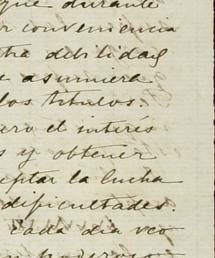 que durante
conveniencia
tra debilidad
e asumiera
los títulos.
aro el interés
s y obtener
eptar la lucha
dificultades.
cada dia veo
poderoso